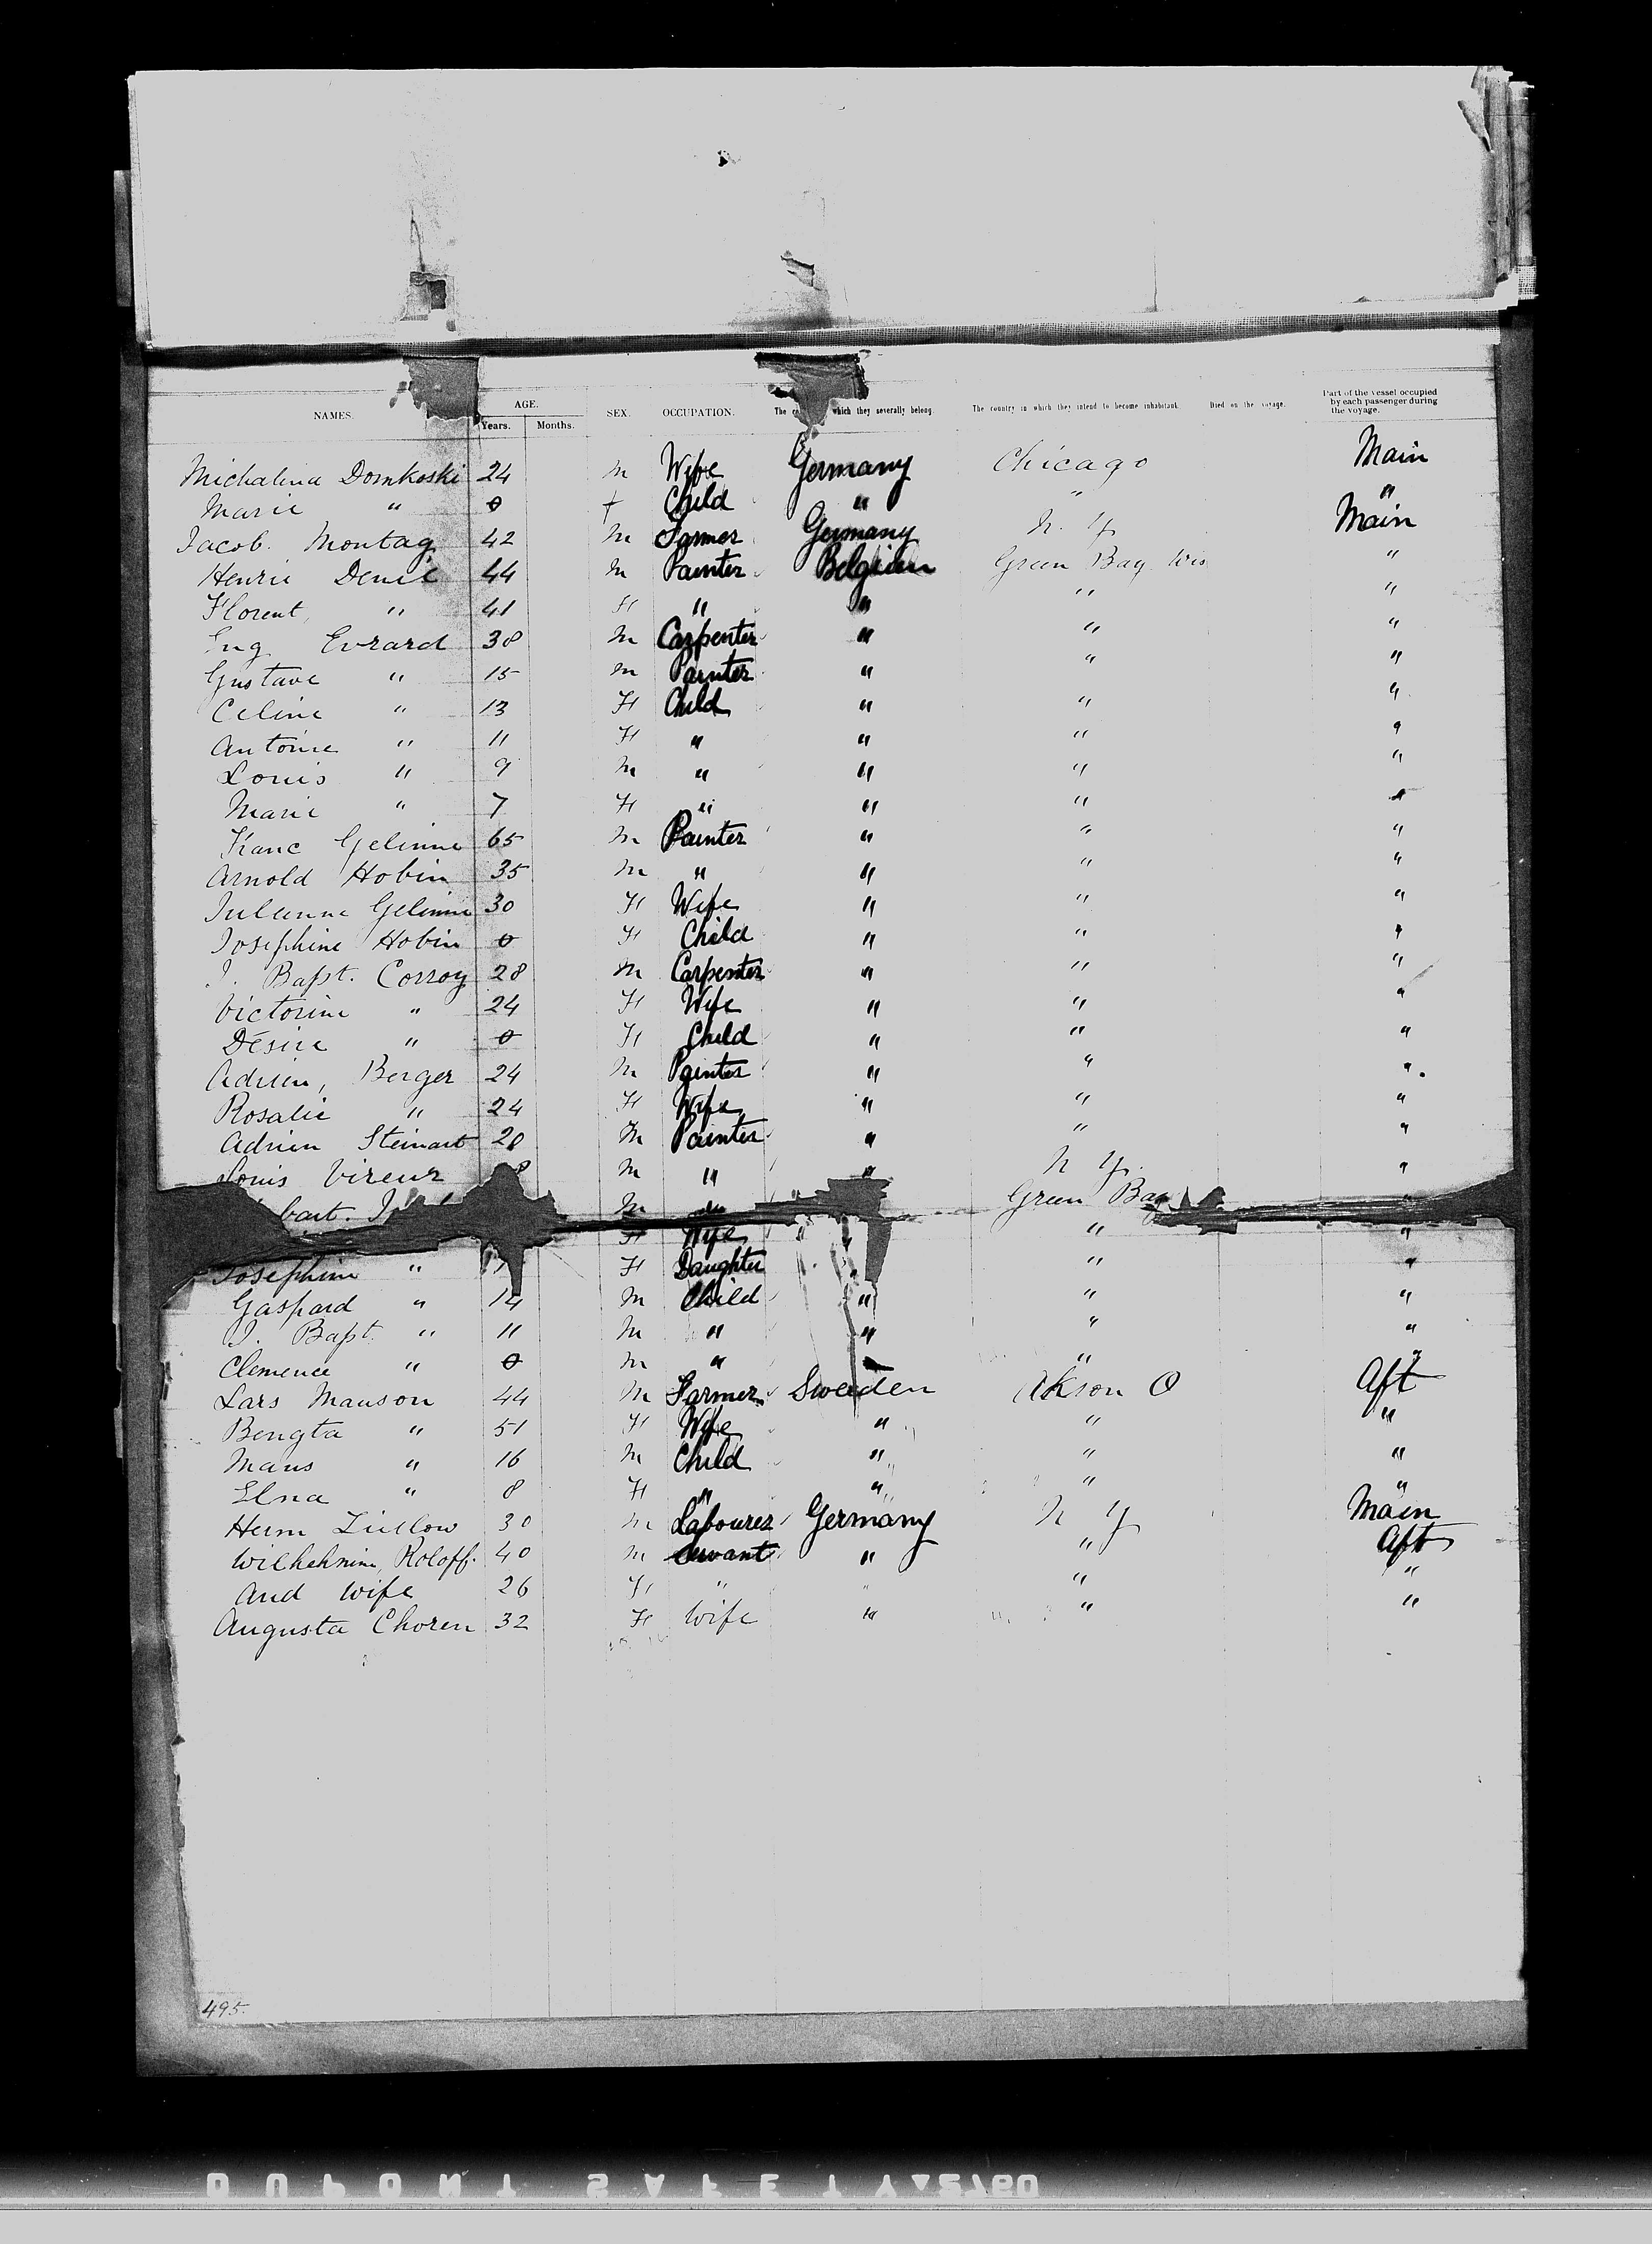 NAMES. AGE. SEX. OCCUPATION. The which they severally belong. The country in which they intend to become inhabitant. Died on the voyage. Part of the vessel occupied by each passenger during the voyage.
Years. Months.
Michalina Domkoski 24 m Wife Germany Chicago Main
Marie " 0 f Child " " "
Jacob. Montag 42 m Farmer Germany N. Y. Main
Henrie Denil 44 m Painter Belgium Green Bay Wis "
Florent, " 41 F " " " "
Eug Evrard 38 m Carpenter " " "
Gustave " 15 m Painter " " "
Celine " 13 F Child " " "
Antoine " 11 F " " " "
Louis " 9 m " " " "
Marie " 7 F " " " "
Franc Gelinne 65 m Painter " " "
Arnold Hobin 35 m " " " "
Julienne Gelinne 30 F Wife " " "
Josephine Hobin 0 F Child " " "
J. Bapt. Corroy 28 m Carpenter " " "
Victorine " 24 F Wife " " "
Désire " 0 F Child " " "
Adrien, Berger 24 m Painter " " "
Rosalie " 24 F Wife " " "
Adrien Steinart 28 m Painter " " "
Louis Vireur 8 m " " N. Y. "
bart. m " Green Bay "
F Wife " " "
Josephine " 1 F Daughter " " "
Gaspard " 14 m Child " " "
J. Bapt. " 11 m " " " "
Clemence " 0 m " " " "
Lars Manson 44 m Farmer Sweeden Akson O Aft
Bengta " 51 F Wife " " "
Mans " 16 m Child " " "
Elna " 8 F " " " "
Herm Lutlow 30 m Labourer Germany N Y Main
Wilhelmine, Roloff. 40 m Servant " " Aft
And Wife 26 F " " " "
Augusta Choren 32 F Wife " " "
495.
DUPONT SAFETY